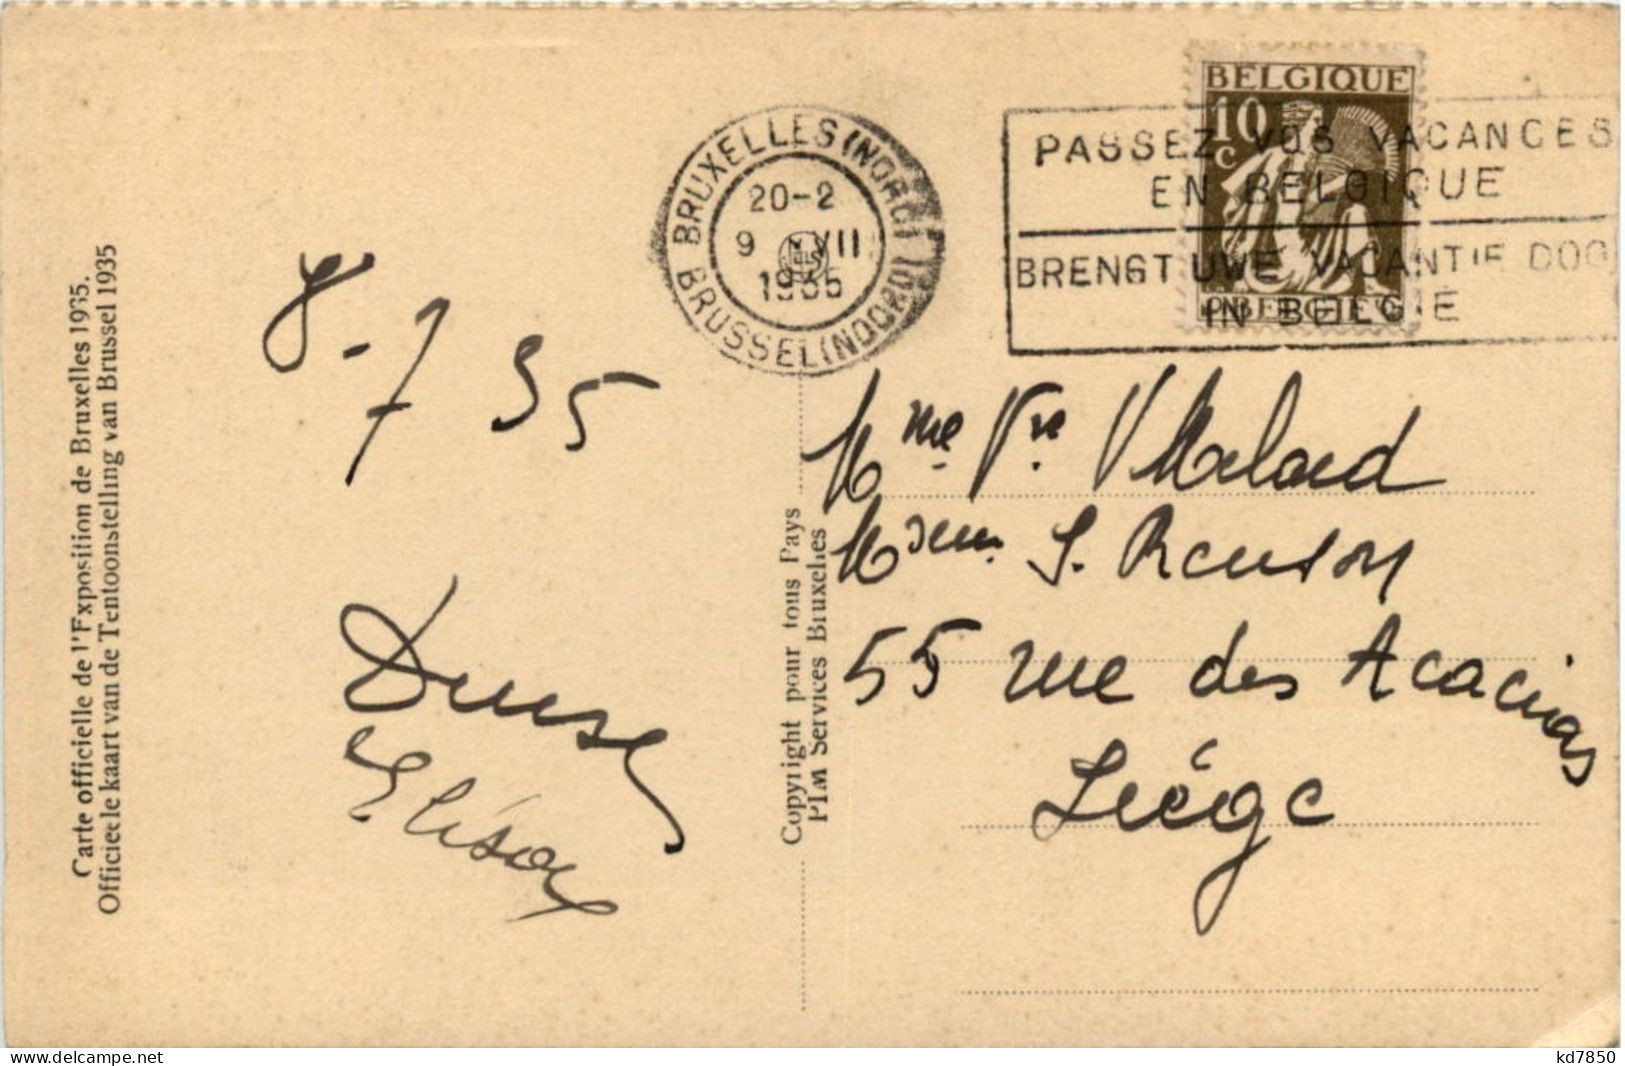 Carte officielle de l'Exposition de Bruxelles 1935.
Officieele kaart van de Tentoonstelling van Brussel 1935
8-7 35
BRUXELLES (NORD)
20-2
9 VII
1935
BRUSSEL (NOORD)
BELGIQUE
10
C
BELGIË
PASSEZ VOS VACANCES
EN BELGIQUE
BRENGT UWE VACANTIE DOO
IN BELGIE
Copyright pour tous Pays
PIM Services Bruxelles
Mme Vve V
S. Renson
55 rue des Acacias
Liége
delcampe.net
kd7850